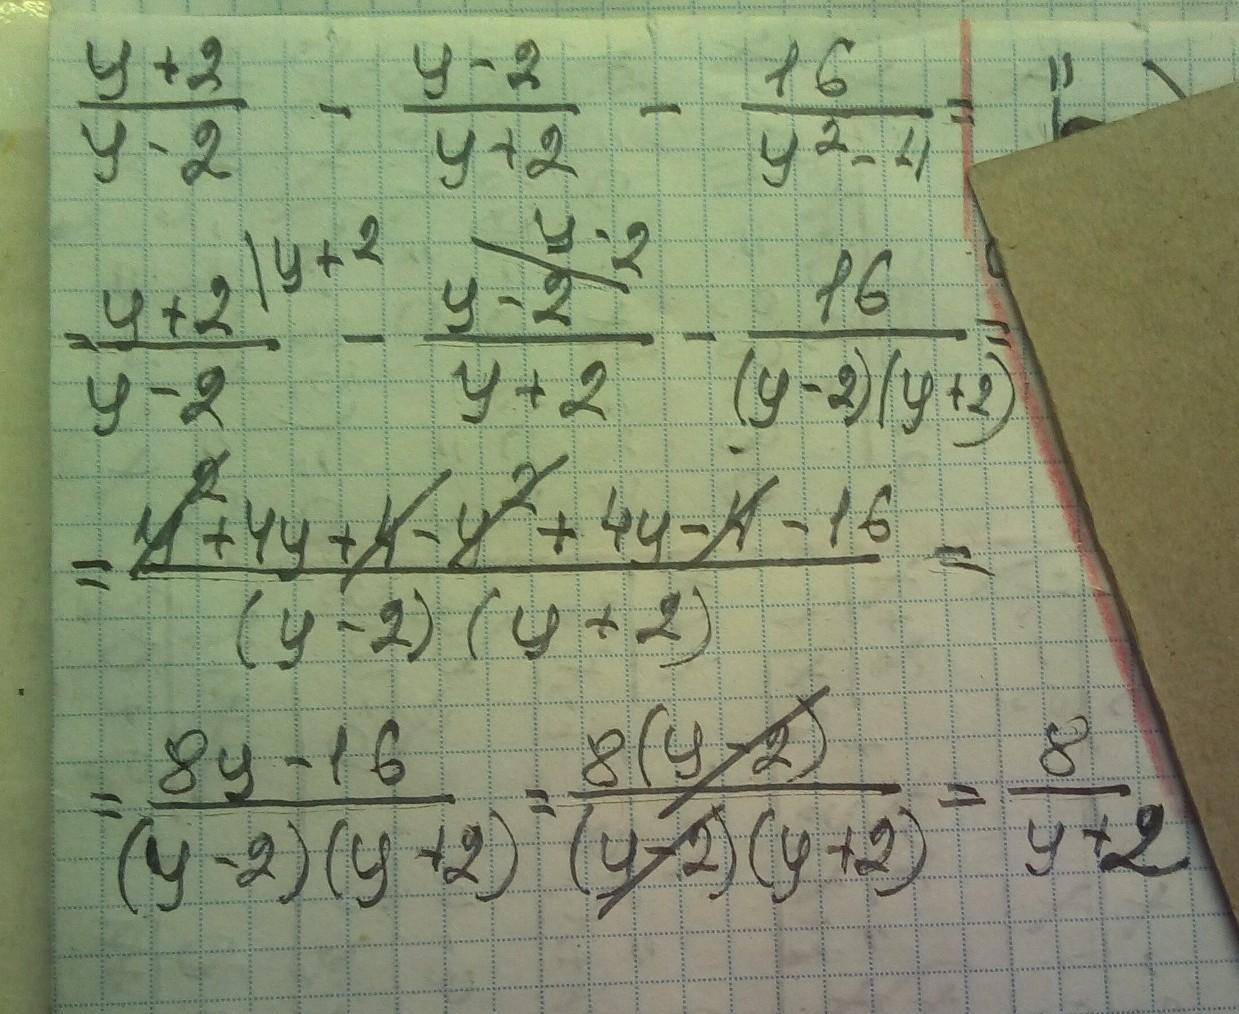 (y+2)/(y-2) - (y-2)/(y+2) - 16/(y²-4) =
= (y+2)/(y-2) \y+2 - (y-2)/(y+2) \y-2 - 16/((y-2)(y+2)) =
= (y²+4y+4-y²+4y-4-16)/((y-2)(y+2)) =
= (8y-16)/((y-2)(y+2)) = 8(y-2)/((y-2)(y+2)) = 8/(y+2)